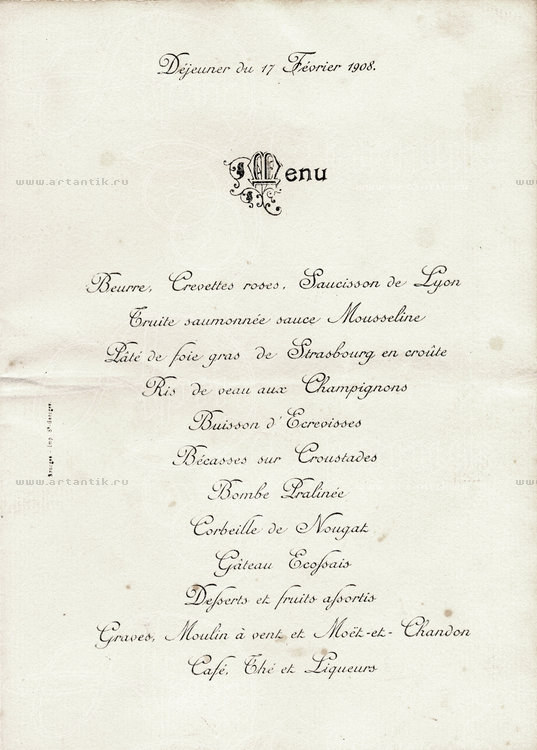 Déjeuner du 17 Février 1908.
Menu
Beurre, Crevettes roses, Saucisson de Lyon
Truite saumonnée sauce Mousseline
Pâté de foie gras de Strasbourg en croûte
Ris de veau aux Champignons
Buisson d'Ecrevisses
Bécasses sur Croustades
Bombe Pralinée
Corbeille de Nougat
Gâteau Ecossais
Desserts et fruits assortis
Graves, Moulin à vent et Moët-et-Chandon
Café, Thé et Liqueurs
www.artantik.ru
www.artantik.ru
www.artantik.ru
www.artantik.ru